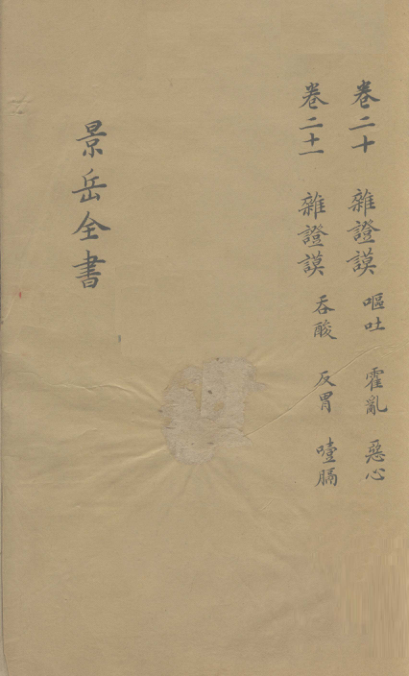 卷二十 雜證謨 嘔吐 霍亂 惡心
卷二十一 雜證謨 吞酸 反胃 噎膈
景岳全書